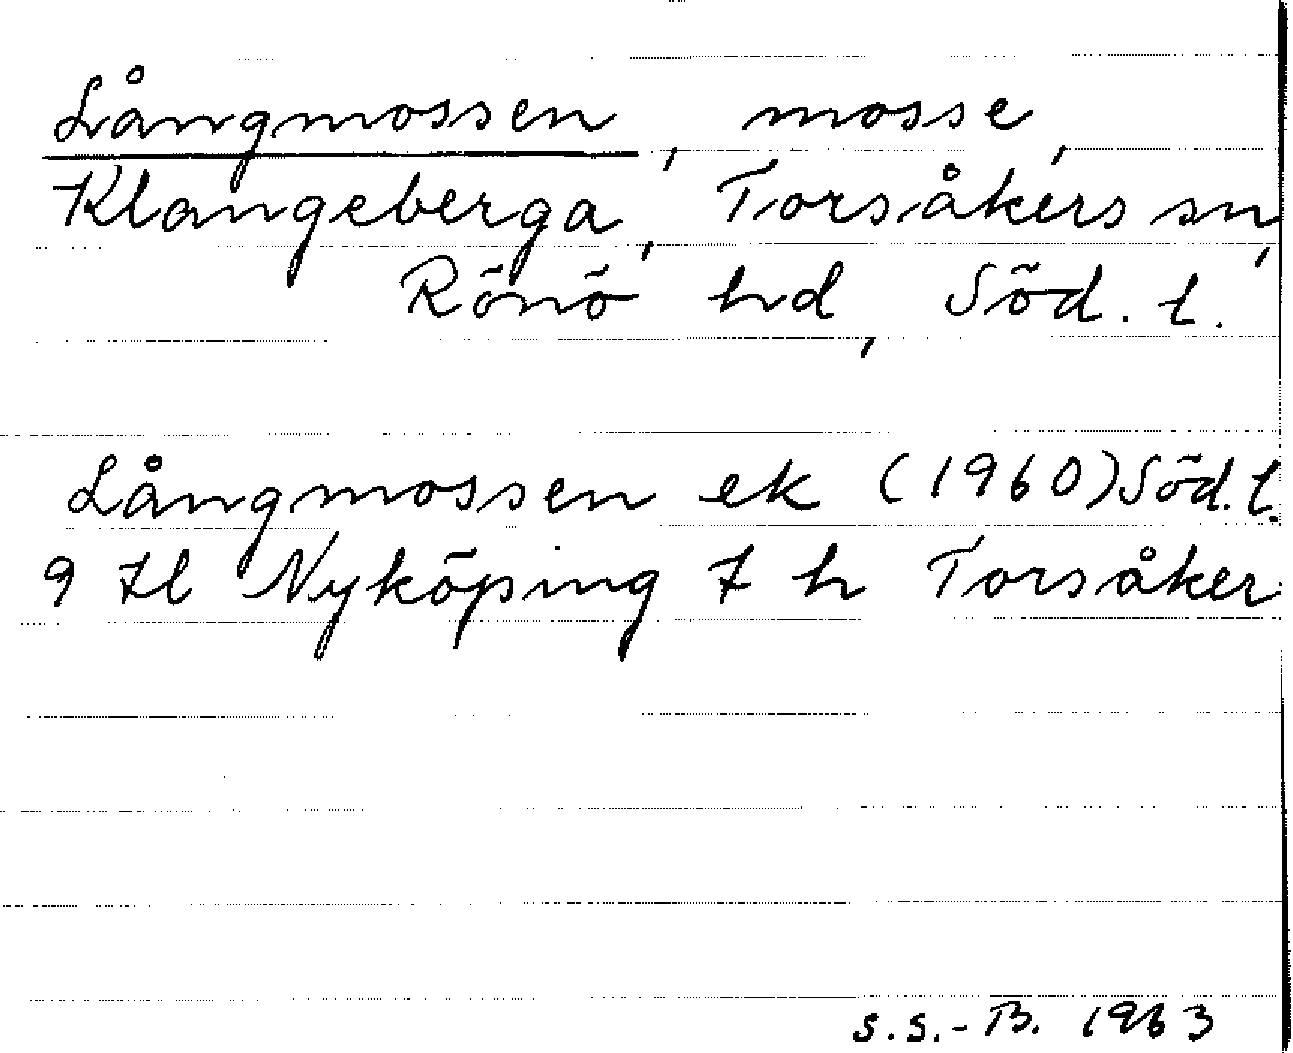 Långmossen, mosse,
Klangeberga, Torsåkers sn,
Rönö hd, Söd. l.
Långmossen ek (1960) Söd. l.
9 Il Nyköping 7 h Torsåker
S.S.-B. 1963